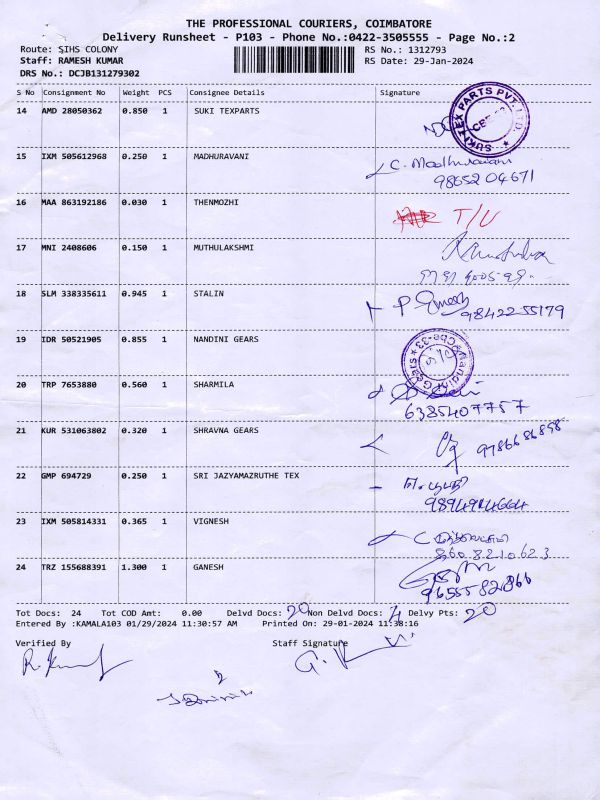 THE PROFESSIONAL COURIERS, COIMBATORE
Delivery Runsheet - P103 - Phone No.:0422-3505555 - Page No.:2
Route: SIHS COLONY RS No.: 1312793
Staff: RAMESH KUMAR RS Date: 29-Jan-2024
DRS No.: DCJB131279302
S No Consignment No Weight PCS Consignee Details Signature
14 AMD 28050362 0.850 1 SUKI TEXPARTS
SUKI TEX PARTS PVT. LTD.
15 IXM 505612968 0.250 1 MADHURAVANI C. Madhuravani
98652 04671
16 MAA 863192186 0.030 1 THENMOZHI T/U
17 MNI 2408606 0.150 1 MUTHULAKSHMI
18 SLM 338335611 0.945 1 STALIN
9842255179
19 IDR 50521905 0.855 1 NANDINI GEARS
Nandini Gears Cbe-33
20 TRP 7653880 0.560 1 SHARMILA
6385407757
21 KUR 531063802 0.320 1 SHRAVNA GEARS 9786686898
22 GMP 694729 0.250 1 SRI JAZYAMAZRUTHE TEX
9894914664
23 IXM 505814331 0.365 1 VIGNESH
8608210623
24 TRZ 155688391 1.300 1 GANESH
9655582866
Tot Docs: 24 Tot COD Amt: 0.00 Delvd Docs: 20 Non Delvd Docs: 4 Delvy Pts: 20
Entered By :KAMALA103 01/29/2024 11:30:57 AM Printed On: 29-01-2024 11:38:16
Verified By Staff Signature